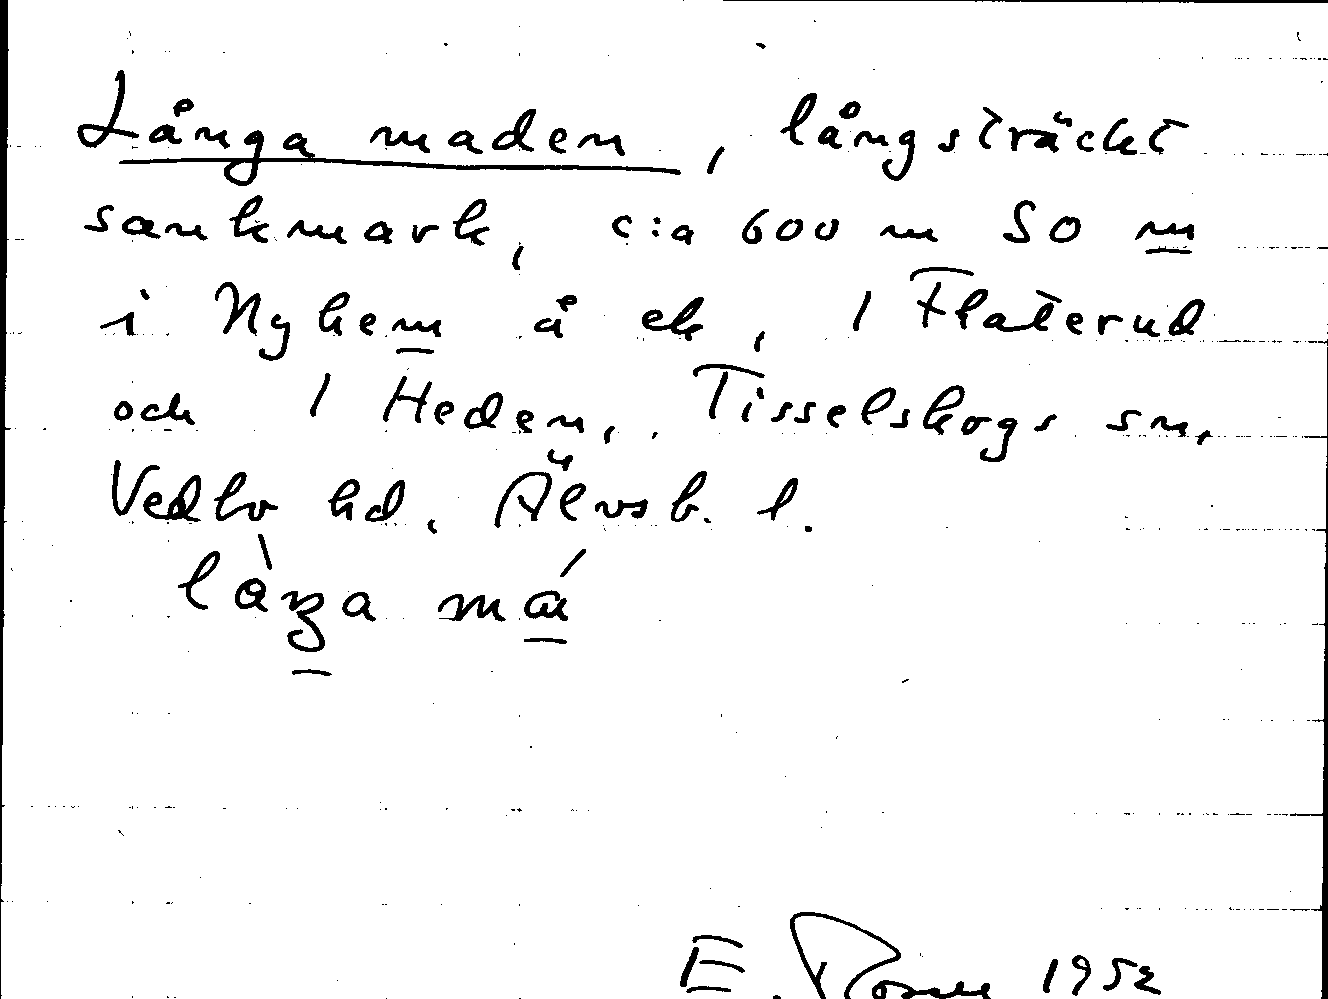 Långa maden, långsträckt
sankmark, c:a 600 m SO m
i Nyhem å ek, 1 Flaterud
och 1 Heden, Tisselskogs sn,
Vedbo hd, Älvsb. l.
E. 1952